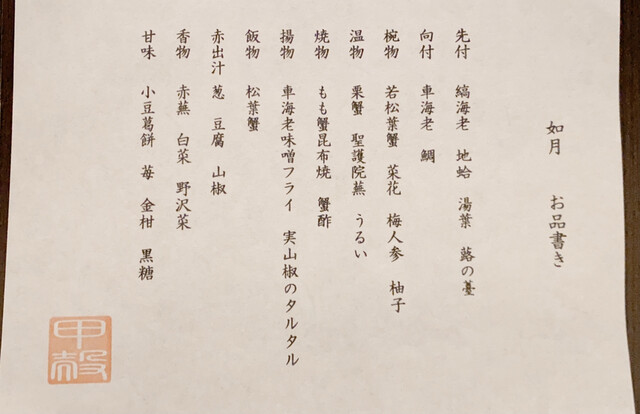 如月　お品書き
先付　縞海老　地蛤　湯葉　蕗の薹
向付　車海老　鯛
椀物　若松葉蟹　菜花　梅人参　柚子
温物　栗蟹　聖護院蕪　うるい
焼物　もも蟹昆布焼　蟹酢
揚物　車海老味噌フライ　実山椒のタルタル
飯物　松葉蟹
赤出汁　葱　豆腐　山椒
香物　赤蕪　白菜　野沢菜
甘味　小豆葛餅　苺　金柑　黒糖
甲殻